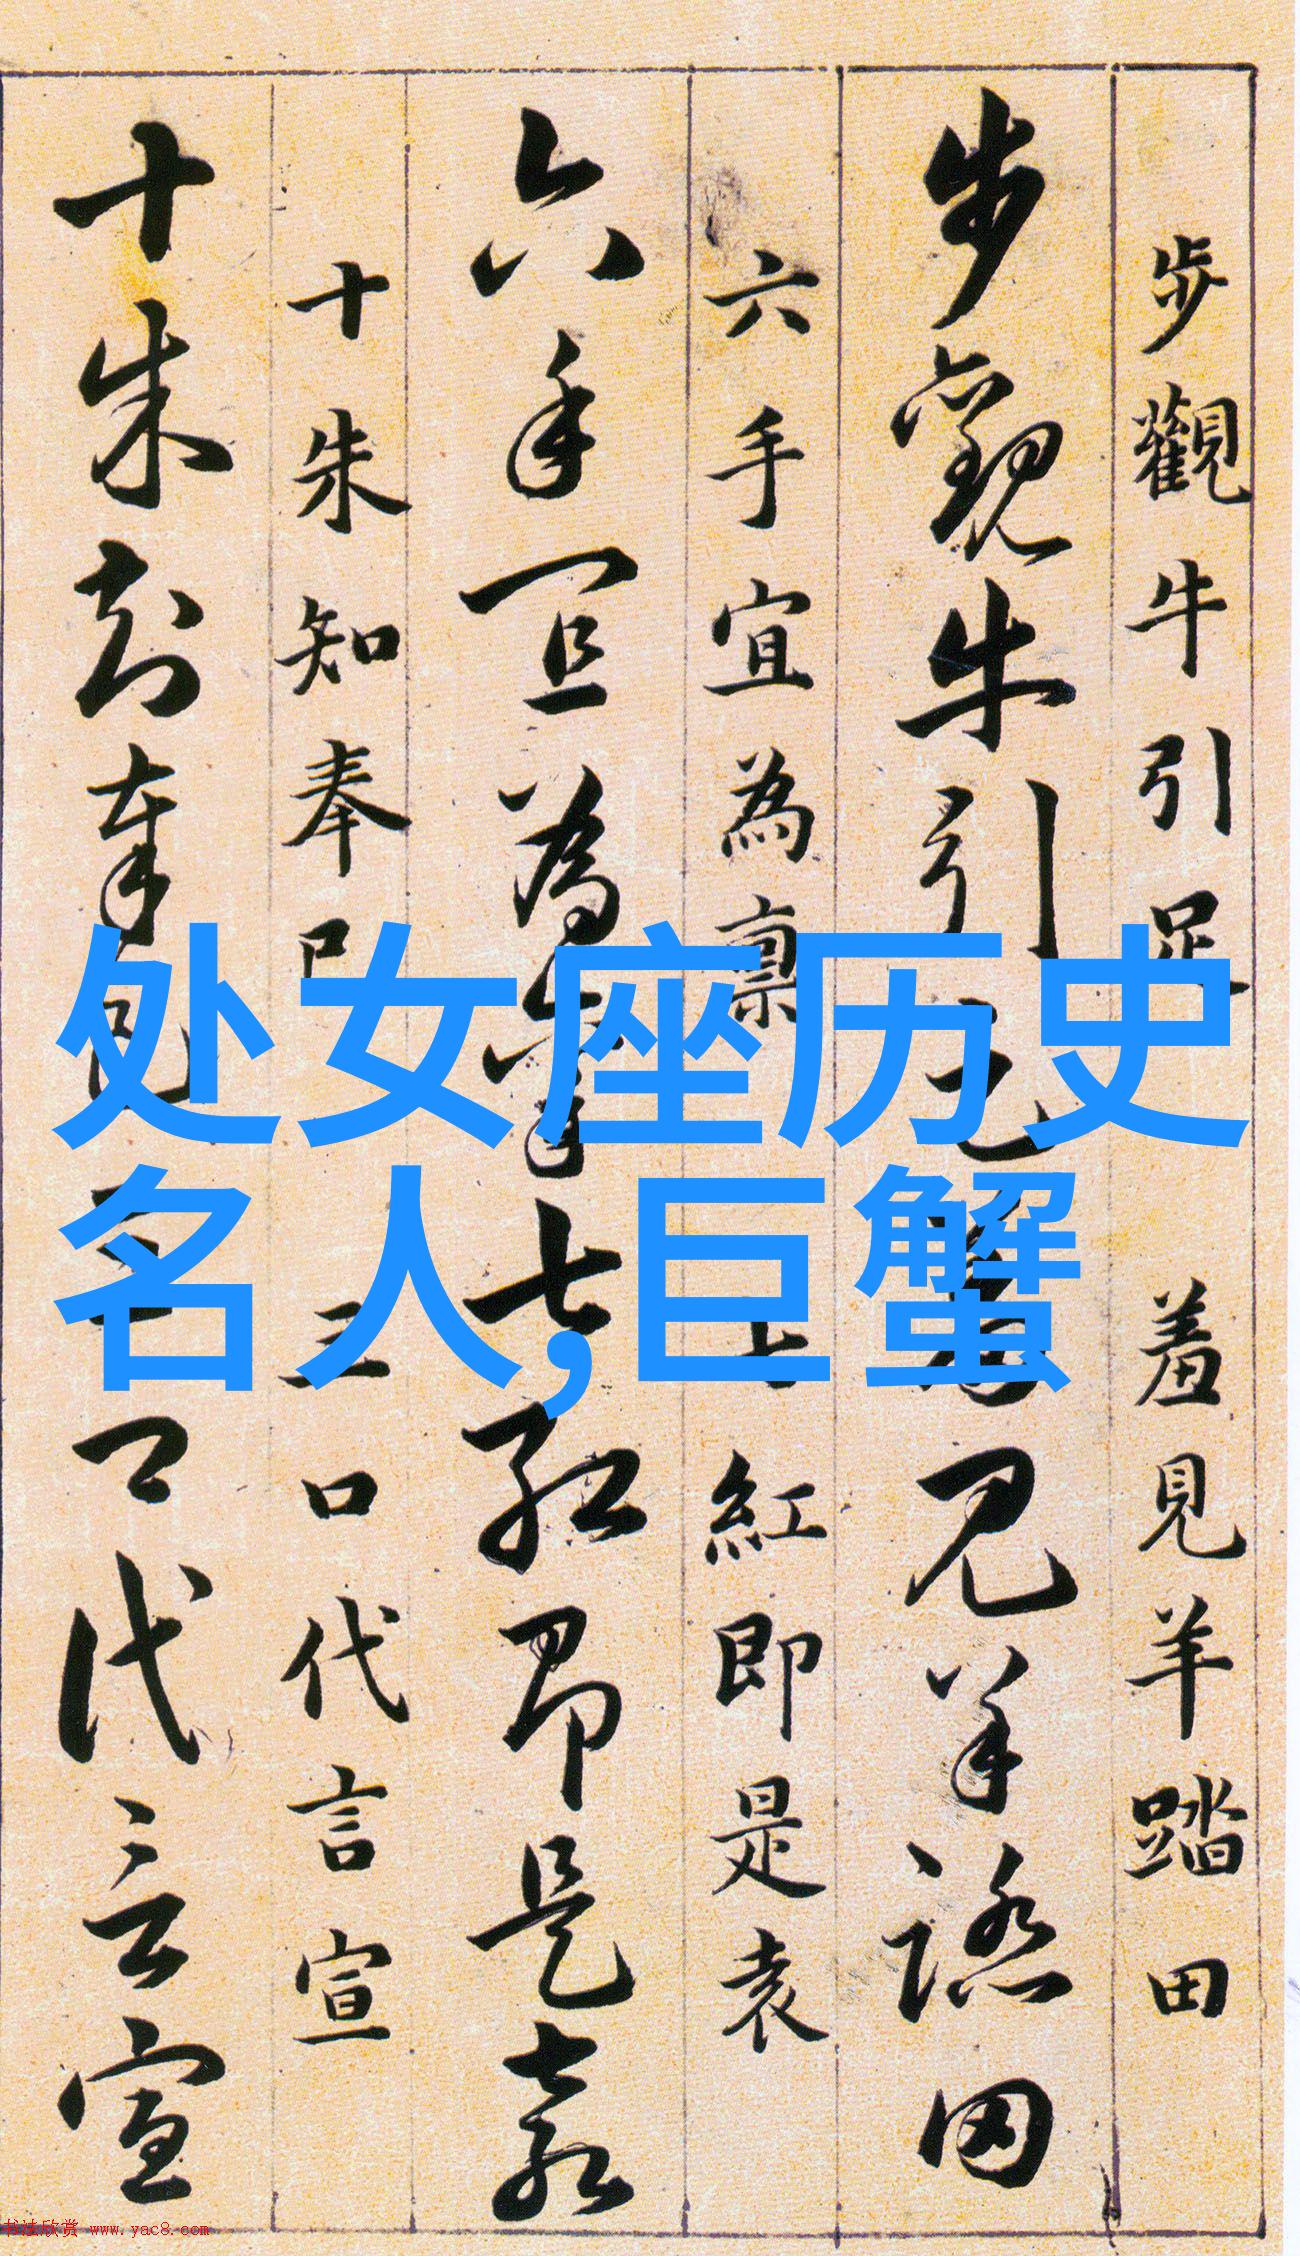 处女座历史
名人,巨蟹
步觀牛引足羞見羊踏田
步觀牛引足羞見羊踏田
六手宜為稟七紅即是袁
六手宜為稟七紅即是袁
十朱知奉三口代言宣
十朱知奉三口代言宣
书法欣赏 www.yac8.com